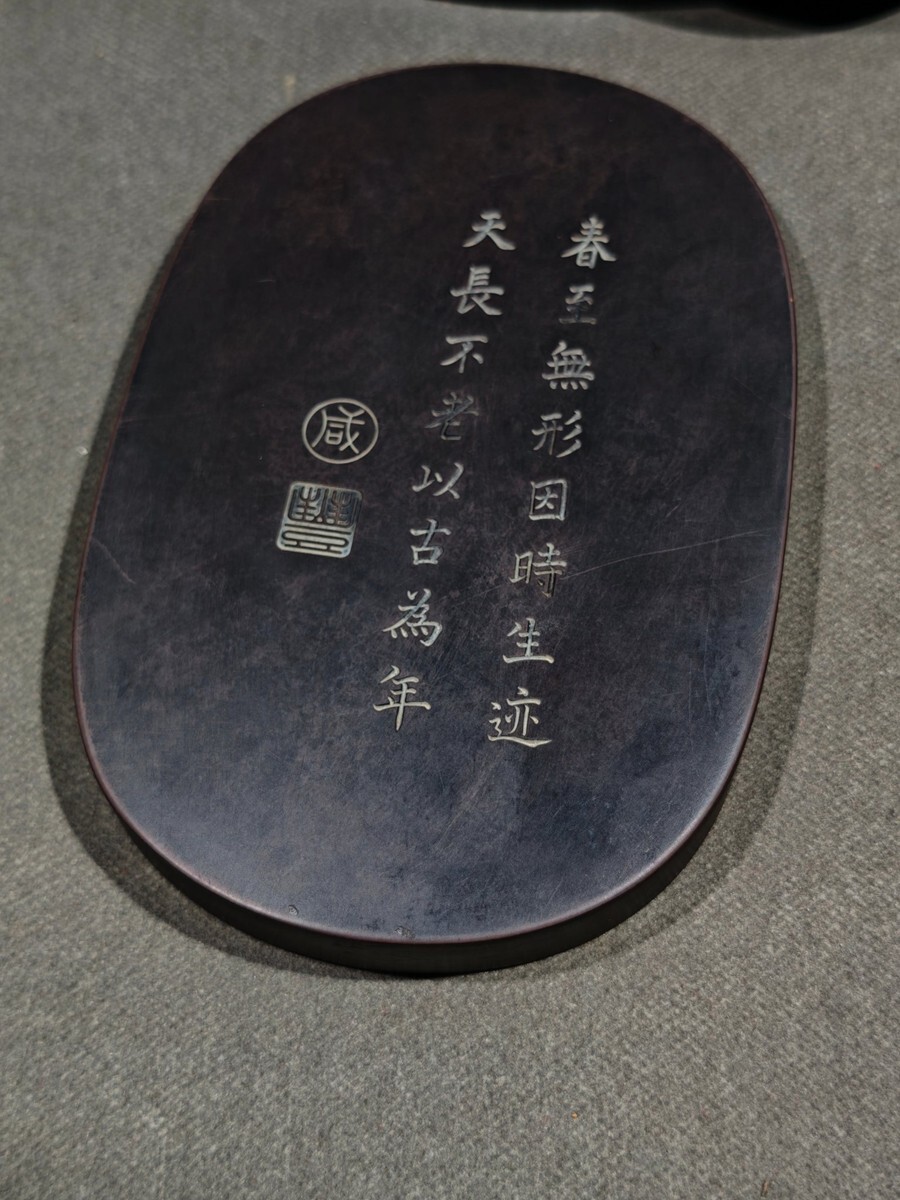 春至無形因時生迹
天長不老以古為年
咸
豐